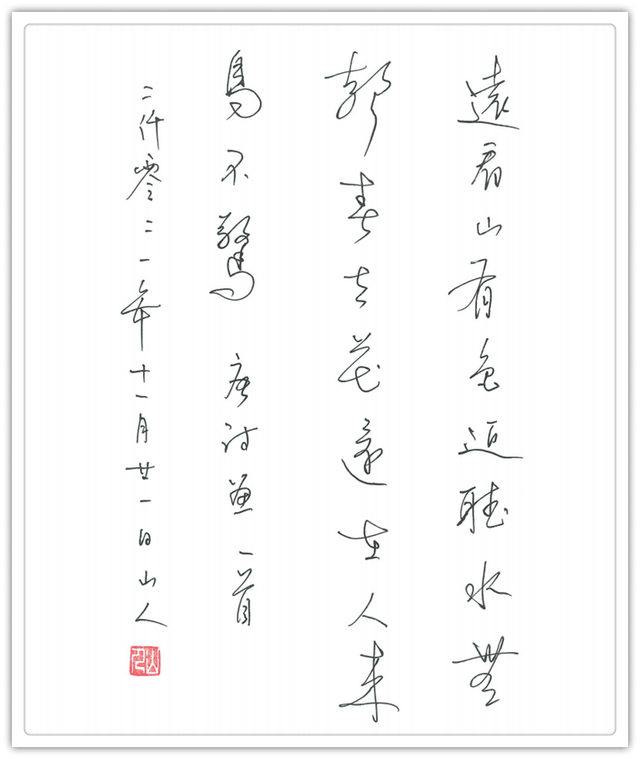 遠看山有色近聽水無
聲春去花還在人來
鳥不驚 唐詩畫一首
二仟零二一年十一月廿一日山人